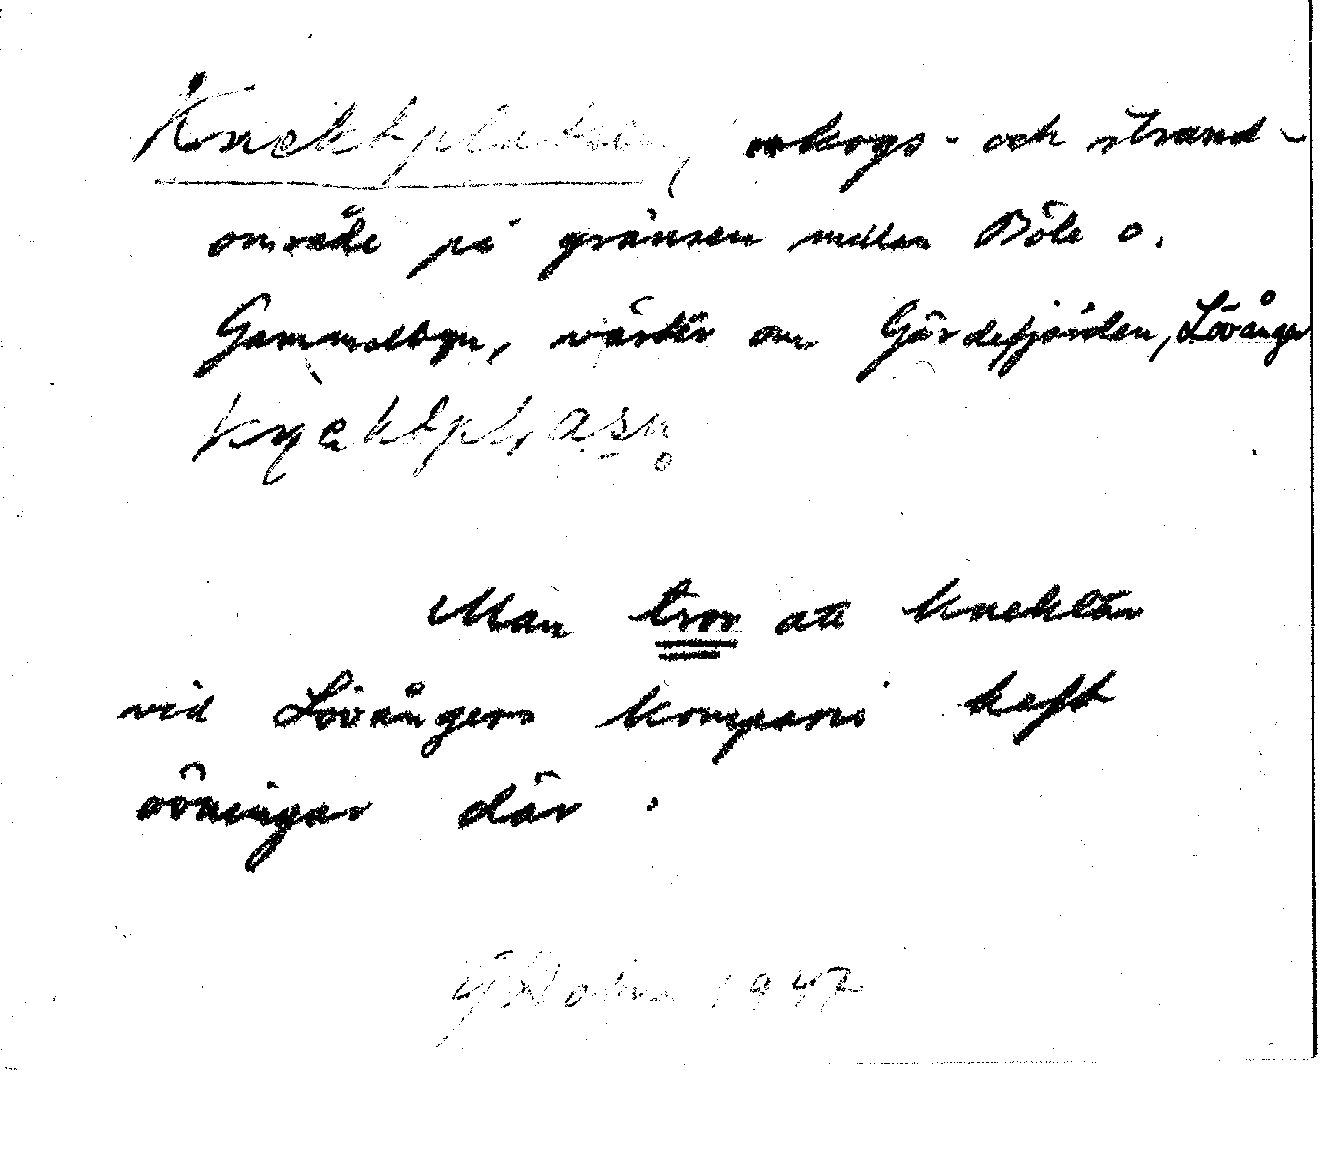 Knektplatsen, skogs- och strand-
område på gränsen mellan Böle o.
Gammelbyn, väster om Gärdefjärden, Lövånger
Man tror att knektar
vid Lövångers kompani haft
övningar där.
1947